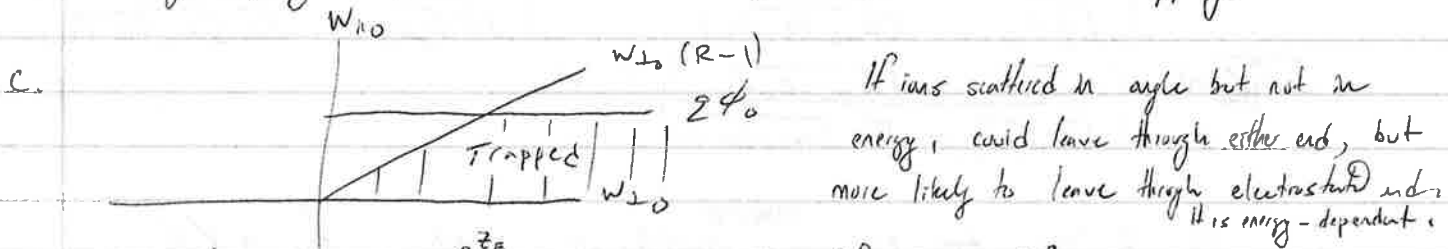 W∥₀
W⊥₀ (R-1)
C.
qΦ₀
Trapped
W⊥₀
If ions scattered in angle but not in
energy, could leave through either end, but
more likely to leave through electrostatic end.
It is energy-dependent.